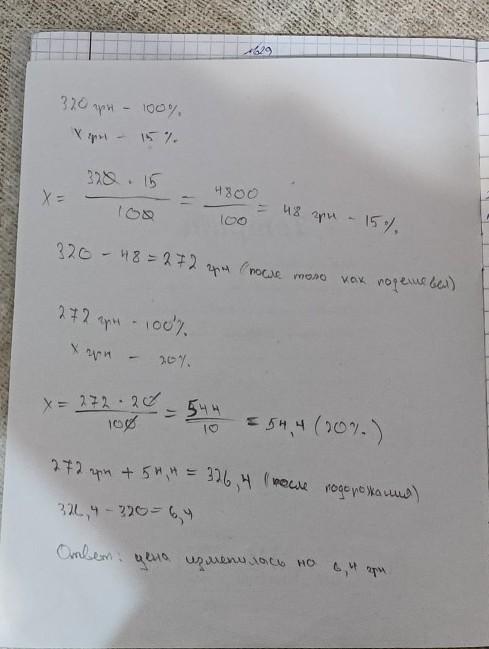 1629
320 грн - 100%.
x грн - 15%.
x = 320 · 15 / 100 = 4800 / 100 = 48 грн - 15%.
320 - 48 = 272 грн (после того как подешевел)
272 грн - 100%.
x грн - 20%.
x = 272 · 20 / 100 = 544 / 10 = 54,4 (20%.)
272 грн + 54,4 = 326,4 (после подорожания)
326,4 - 320 = 6,4
Ответ: цена изменилась на 6,4 грн